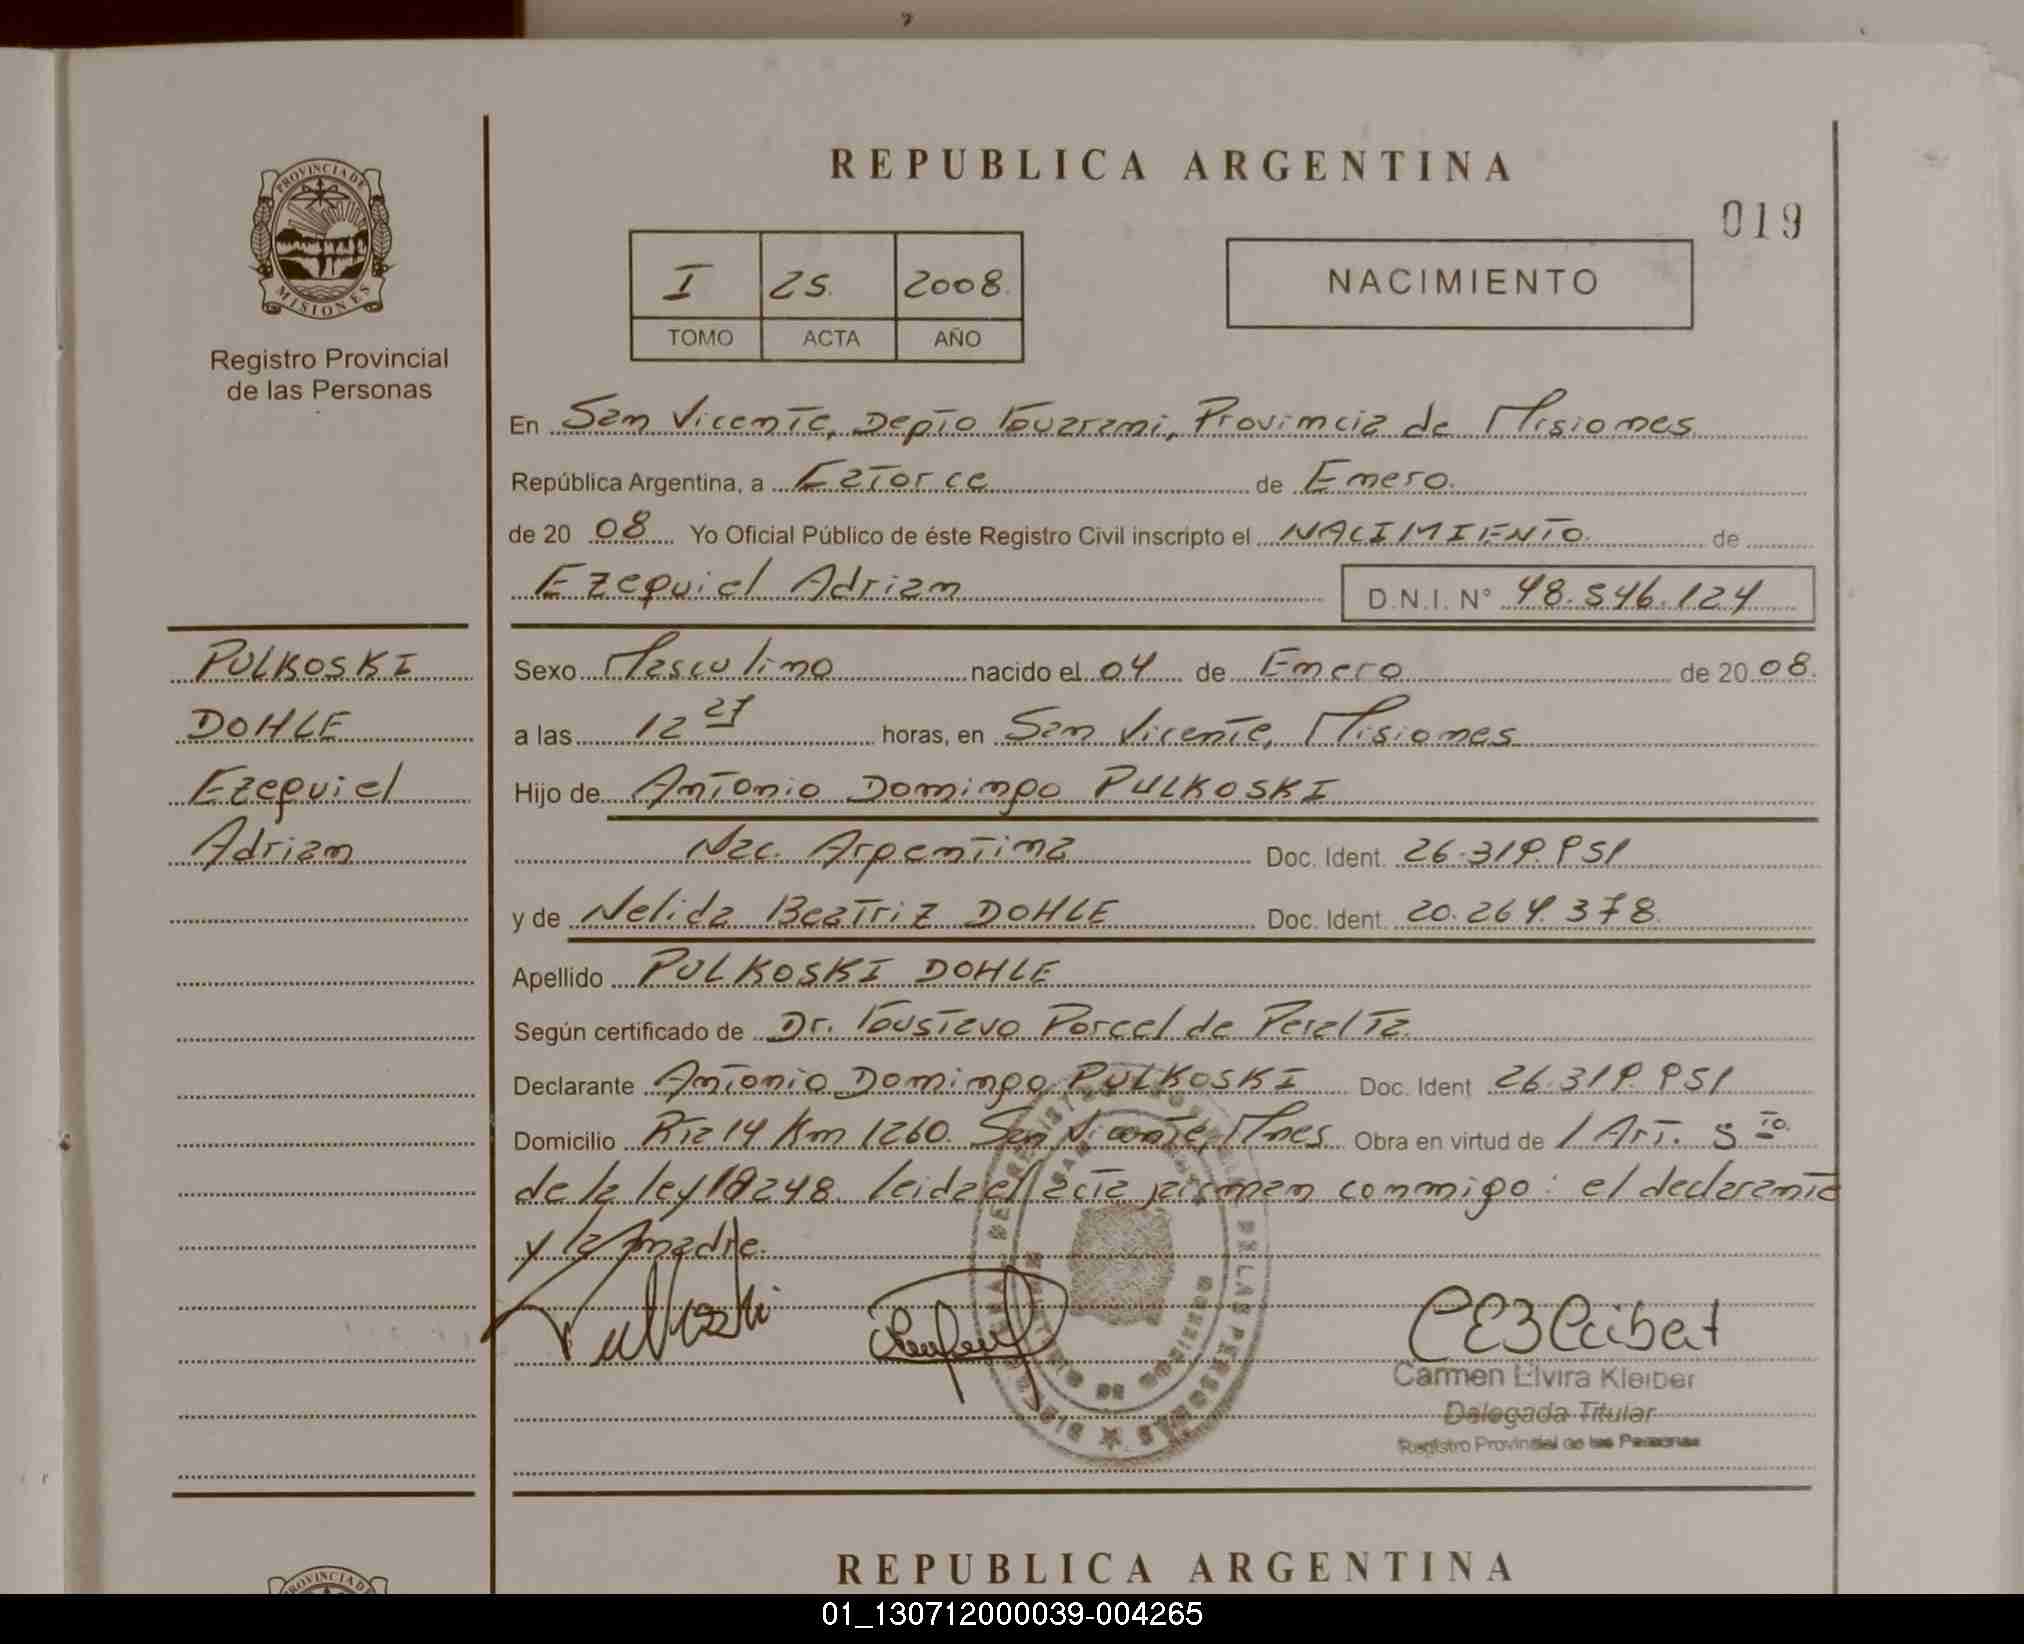 REPUBLICA ARGENTINA
019
PROVINCIA DE
MISIONES
Registro Provincial
de las Personas
I 25. 2008.
TOMO ACTA AÑO
NACIMIENTO
En San Vicente, Depto Guarani, Provincia de Misiones
República Argentina, a Catorce de Enero.
de 20 08 Yo Oficial Público de éste Registro Civil inscripto el NACIMIENTO. de
Ezequiel Adrian D.N.I. N° 48.546.124
PULKOSKI
DOHLE
Ezequiel
Adrian
Sexo Masculino nacido el 04 de Enero de 20 08.
a las 12 27 horas, en San Vicente, Misiones
Hijo de Antonio Domingo PULKOSKI
Nac. Argentina Doc. Ident. 26.319.951
y de Nelida Beatriz DOHLE Doc. Ident. 20.264.378.
Apellido PULKOSKI DOHLE
Según certificado de Dr. Gustavo Porcel de Peralta.
Declarante Antonio Domingo PULKOSKI Doc. Ident 26.319.951
Domicilio Rta 14 Km 1260. San Vicente, Mnes. Obra en virtud de / Art. 5 to.
de la ley 18248. leida el acta firman conmigo: el declarante
y la madre.
Carmen Elvira Kleiber
Delegada Titular
Registro Provincial de las Personas
REPUBLICA ARGENTINA
PROVINCIA D
01_130712000039-004265